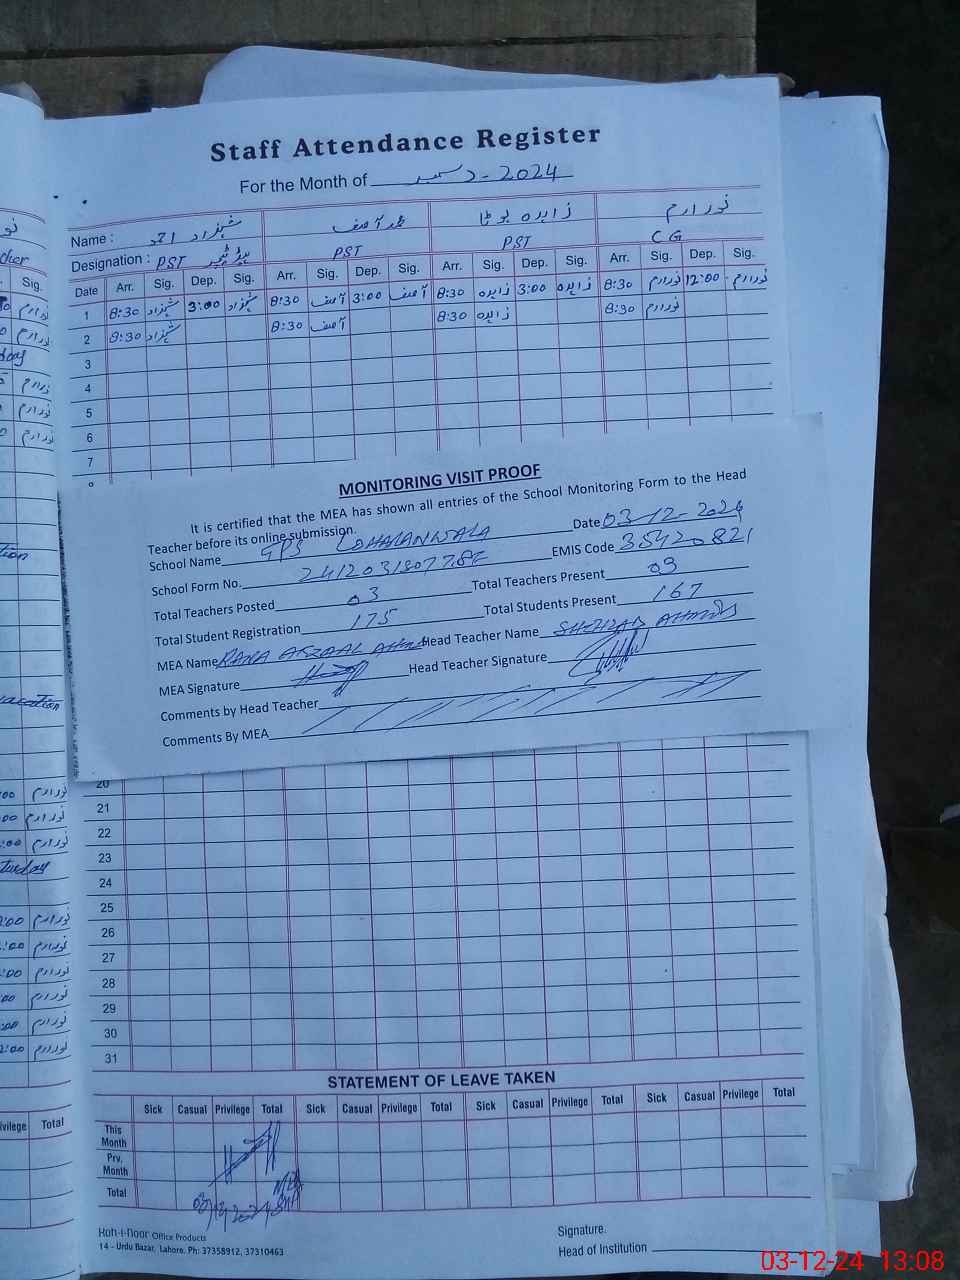 Staff Attendance Register
For the Month of دسمبر - 2024
Name : شہزاد احمد محمد آصف زاہدہ بوٹا نور ارم
Designation : PST ہیڈ ٹیچر PST PST C G
Date Arr. Sig. Dep. Sig. Arr. Sig. Dep. Sig. Arr. Sig. Dep. Sig. Arr. Sig. Dep. Sig.
1 8:30 شہزاد 3:00 شہزاد 8:30 آصف 3:00 آصف 8:30 زاہدہ 3:00 زاہدہ 8:30 نورارم 12:00 نورارم
2 8:30 شہزاد 8:30 آصف 8:30 زاہدہ 8:30 نورارم
3
4
5
6
7
MONITORING VISIT PROOF
It is certified that the MEA has shown all entries of the School Monitoring Form to the Head
Teacher before its online submission.
School Name GPS LOHARANWALA Date 03-12-2024
School Form No. EMIS Code 35420821
Total Teachers Posted 03 Total Teachers Present 03
Total Student Registration 175 Total Students Present 167
MEA Name RANA AFZAAL AHMAD Head Teacher Name SHEHZAD AHMAD
MEA Signature Head Teacher Signature
Comments by Head Teacher
Comments By MEA
20
21
22
23
24
25
26
27
28
29
30
31
STATEMENT OF LEAVE TAKEN
Sick Casual Privilege Total Sick Casual Privilege Total Sick Casual Privilege Total Sick Casual Privilege Total
This Month
Prv. Month
Total
Koh-i-Noor Office Products
14 - Urdu Bazar, Lahore. Ph: 37358912, 37310463
Signature.
Head of Institution
03-12-24 13:08